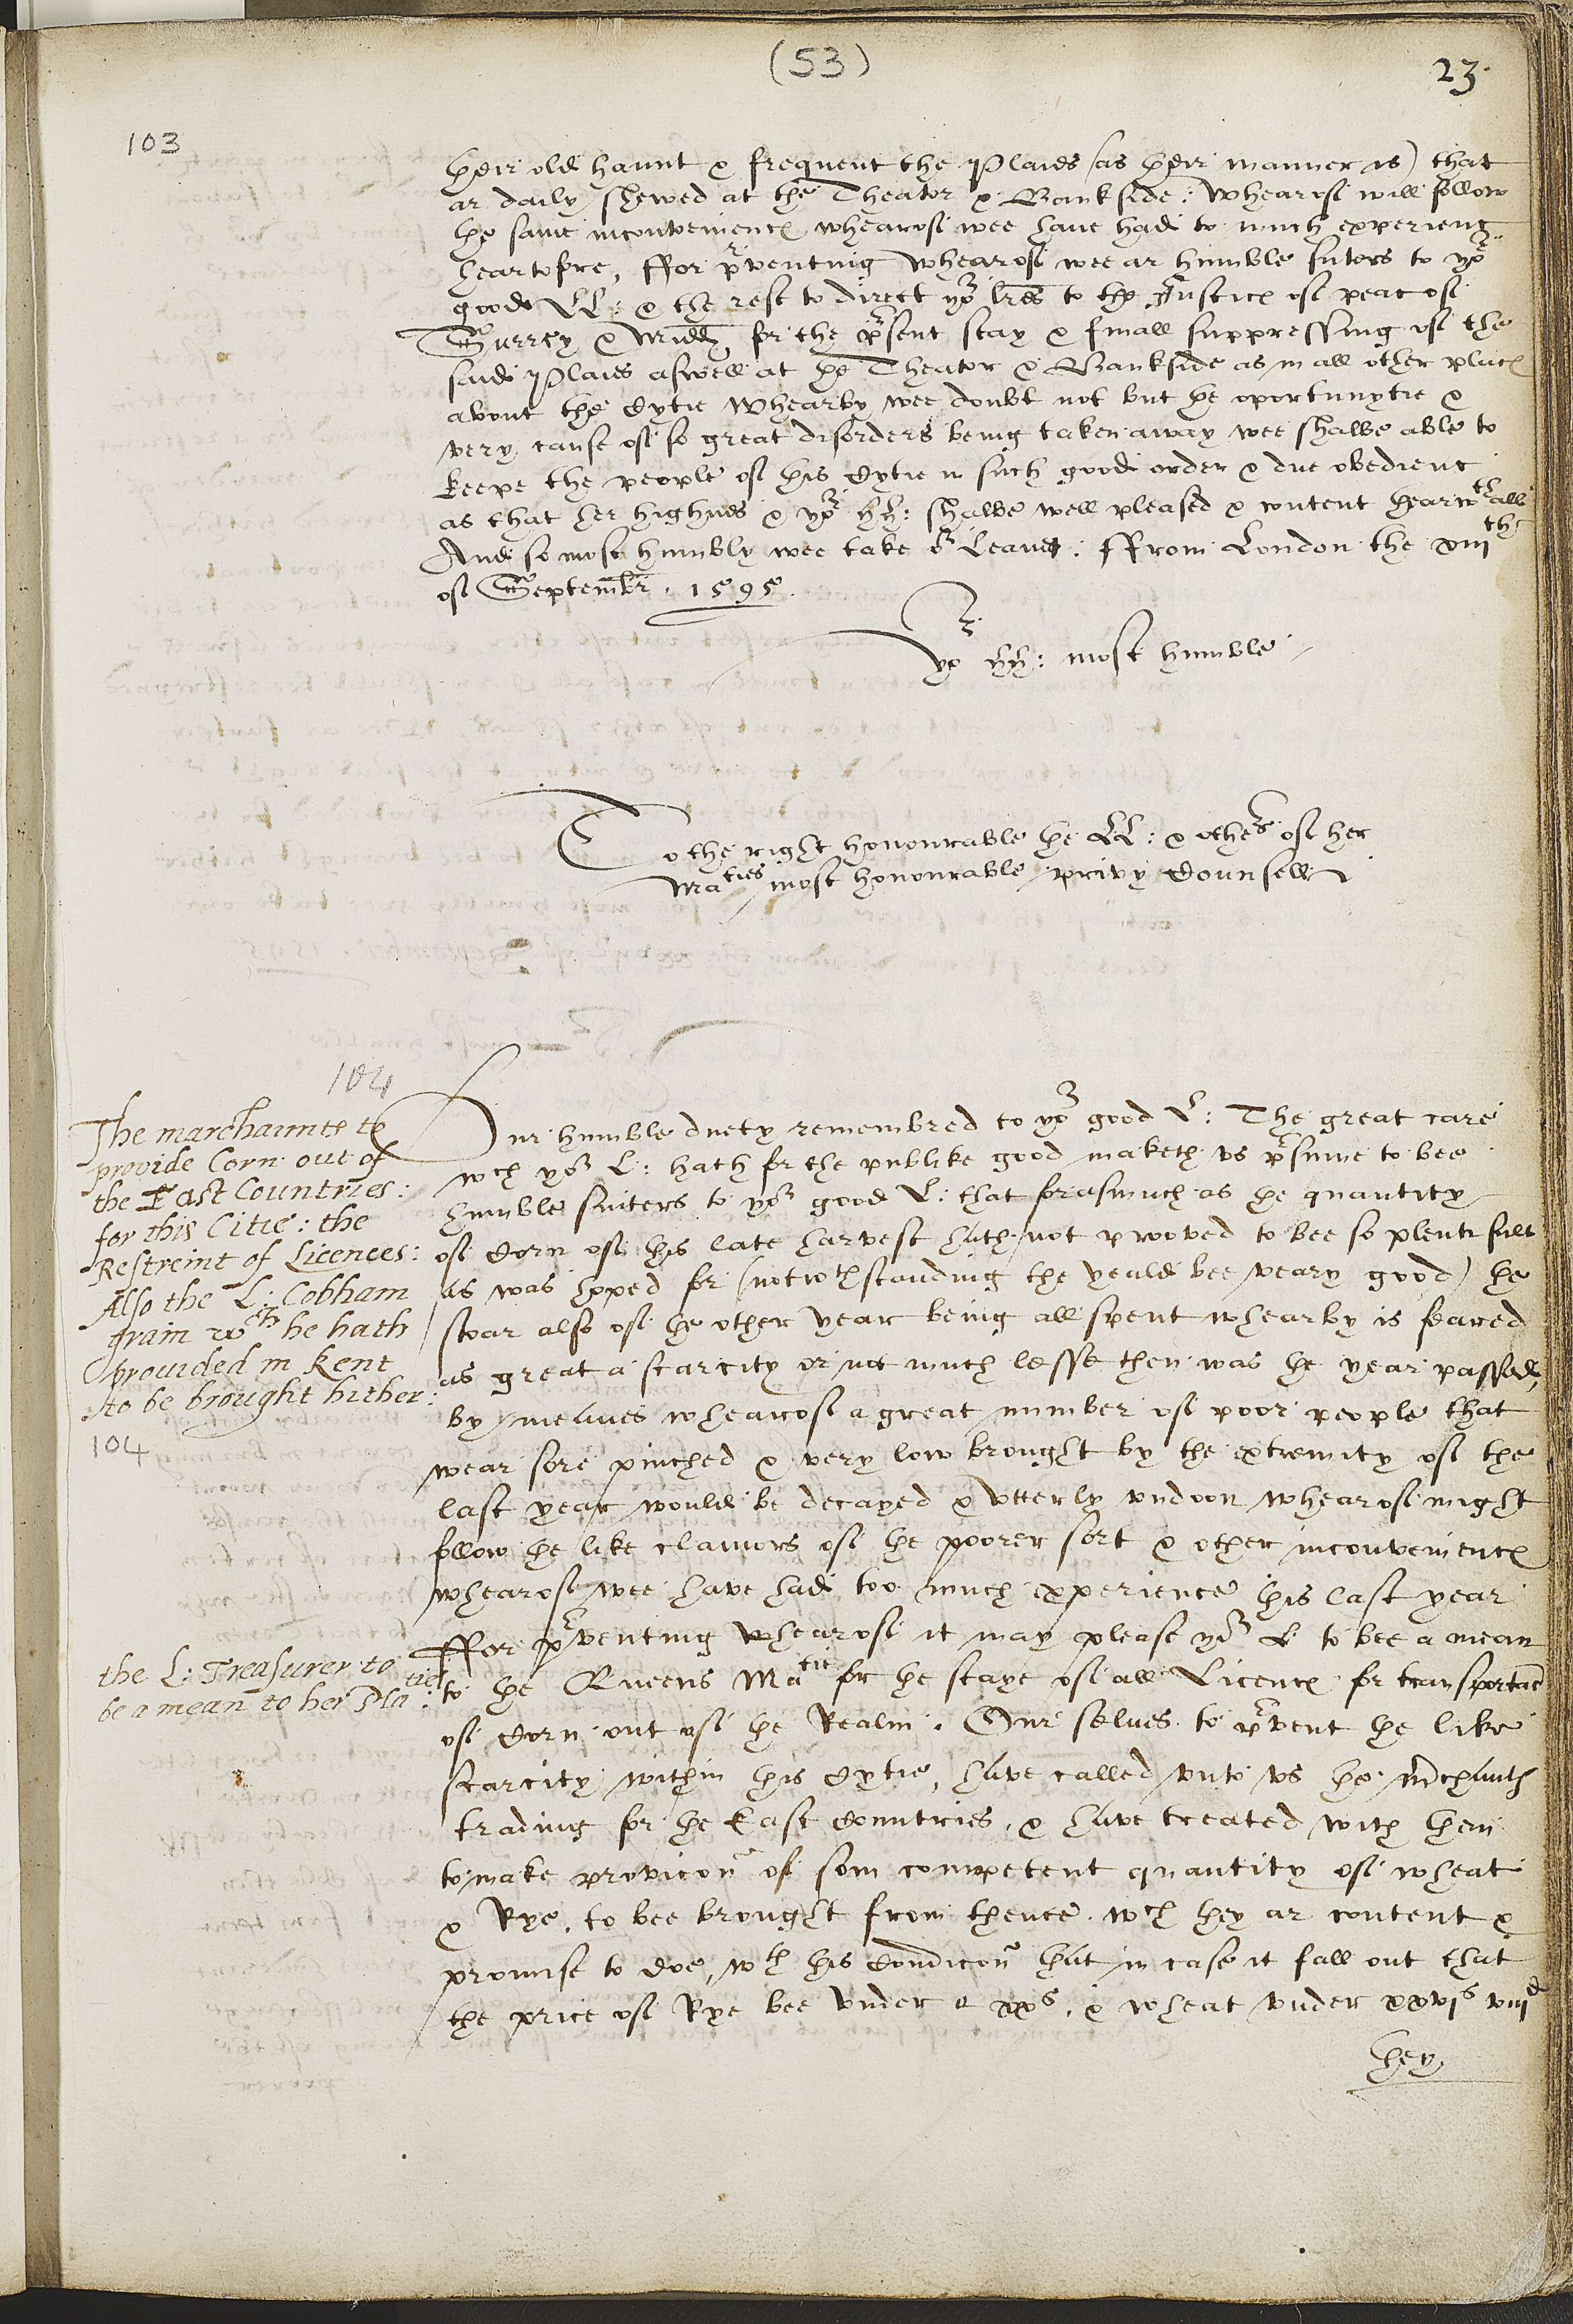 (53)
23.
103
their old haunt & frequent the Plaies (as their manner is) that
ar daily shewed at the Theator & Bankside: Whearof will follow
the same inconveniences whearof wee have had to much experienc
heartofore, ffor pʳventing whearof wee ar humble sutors to yoʳ
good LL: & the rest to direct yoʳ lr̃es to the Justices of peac of
Surrey & Midd for the pʳsent stay & finall suppressing of the
said Plaies aswell at the Theator & Bankside as in all other places
about the Cytie Whearby wee doubt not but the oportunytie &
very cause of so great disorders being taken away wee shalbe able to
keepe the people of this Cytie in such good order & due obedienc
as that her highnes & yoʳ HH: shalbe well pleased & content hearwᵗʰall
And so most humbly wee take oʳ Leaves. ffrom London the xiijᵗʰ
of Septembʳ. 1595.
Yoʳ HH: most humble
To the right honourable the LL: & others of her
Maᵗⁱᵉˢ most honourable privy Counsell
104
The marchauntes to
provide Corn out of
the East Countries:
for this Citie: the
Restreint of Licences:
Also the L: Cobham
grain wᶜʰ he hath
provided in Kent
to be brought hither:
104
Our humble duety remembred to yoʳ good L: The great care
wᶜʰ yoʳ L: hath for the publike good maketh us pʳsume to bee
humble suiters to yoʳ good L: that forasmuch as the quantity
of Corn of this late harvest hath not prooved to bee so plentifull
as was hoped for (notwᵗʰstanding the yeald bee veary good) the
stoar also of the other year being all spent whearby is feared
as great a scarcity or not much lesse then was the year passed,
by meanes whearof a great number of poor people that
wear sore pinched & very low brought by the extremity of the
last year would be decayed & utterly undoon whearof might
follow the like clamors of the poorer sort & other inconveniences
whearof wee have had too much experience this last year
ffor pʳventing whearof it may please yoʳ L to bee a mean
the L: Treasurer to
be a mean to her Maᵗⁱᵉ:
to the Queens Maᵗⁱᵉ for the staye of all Licences for transportac̃
of Corn out of the Realm. Our selves to pʳvent the like
scarcity within this Cytie, have called unto us the m̃chants
trading for the East Countries, & have treated with them
to make provicon̄ of som competent quantity of wheat
& Rye, to bee brought from thence. wᶜʰ they ar content &
promise to doe, wᵗʰ this Condicon̄ that in case it fall out that
the price of Rye bee under a xxˢ. & wheat under xxvjˢ viijᵈ
they